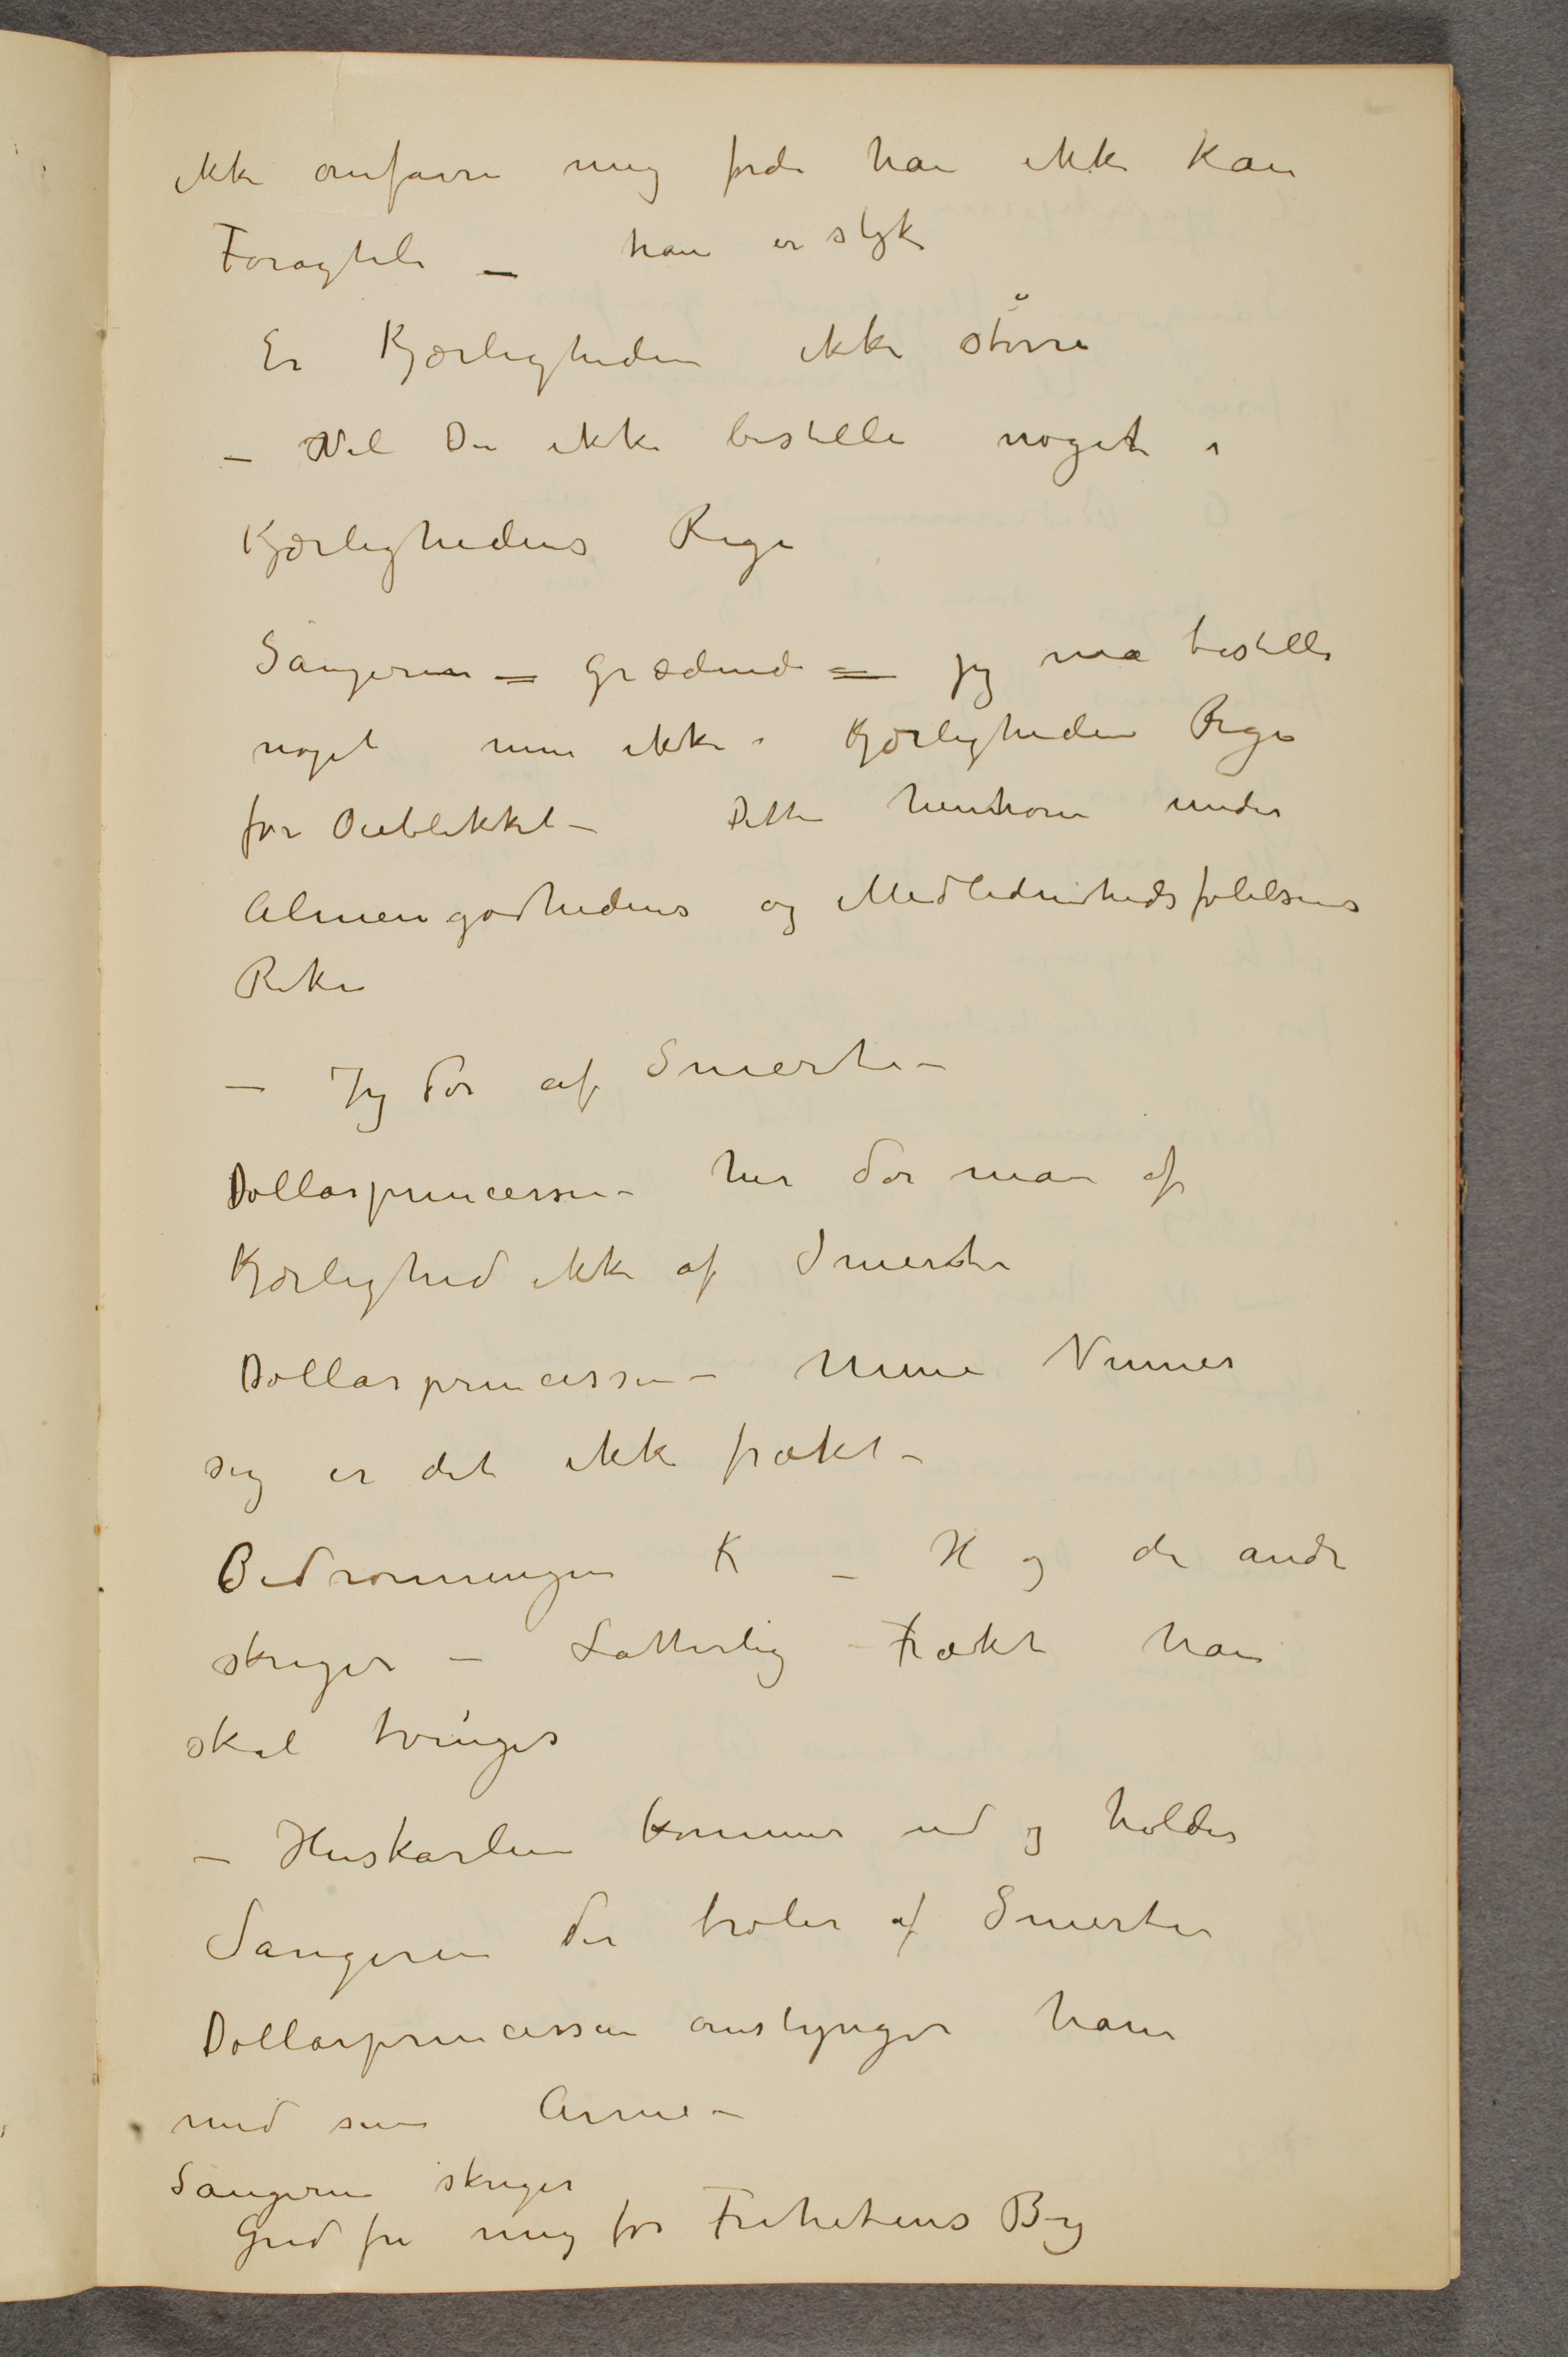 ikke omfavne mig fordi han ikke kan
Foragteli – han er styk
Er Kjærligheden ikke større
– Vil De ikke bestille noget i
Kjærlighedens Rige
Sangeren – grædende – jeg må bestille
noget men ikke i Kjærligheden Rige
for Øieblikket – Dette henhører under
Almengodhedens og Medlidenhedsfølelsens
Rike
– Jeg dør af Smerte –
Dollarprincessen – her dør man af
Kjærlighed ikke af Smerte
Dollarprincessen – Mine Venner
sig er det ikke frækt –
Bedronningen K – H og de andre
skriger – Latterlig – Frækt han
skal tvinges
– Huskarlene kommer ud og holder
Sangeren der brøler af Smerte
Dollarprincessen omslynger ham
med sine Arme –
Sangeren skriger
Gud fri mig for Frihetens By